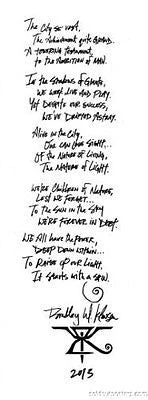 The City so vast,
The Achievement quite grand...
A towering testament,
to the ambition of man.
In the shadows of giants,
we work, live and play.
Yet despite our success,
we've drifted astray.
Alive in the city,
One can lose sight...
Of the nature of living,
The nature of light.
We're children of nature,
Lest we forget...
To the sun in the sky
we're forever in debt.
We all have the power,
Deep down within...
To raise up our light,
It starts with a spin.
2015